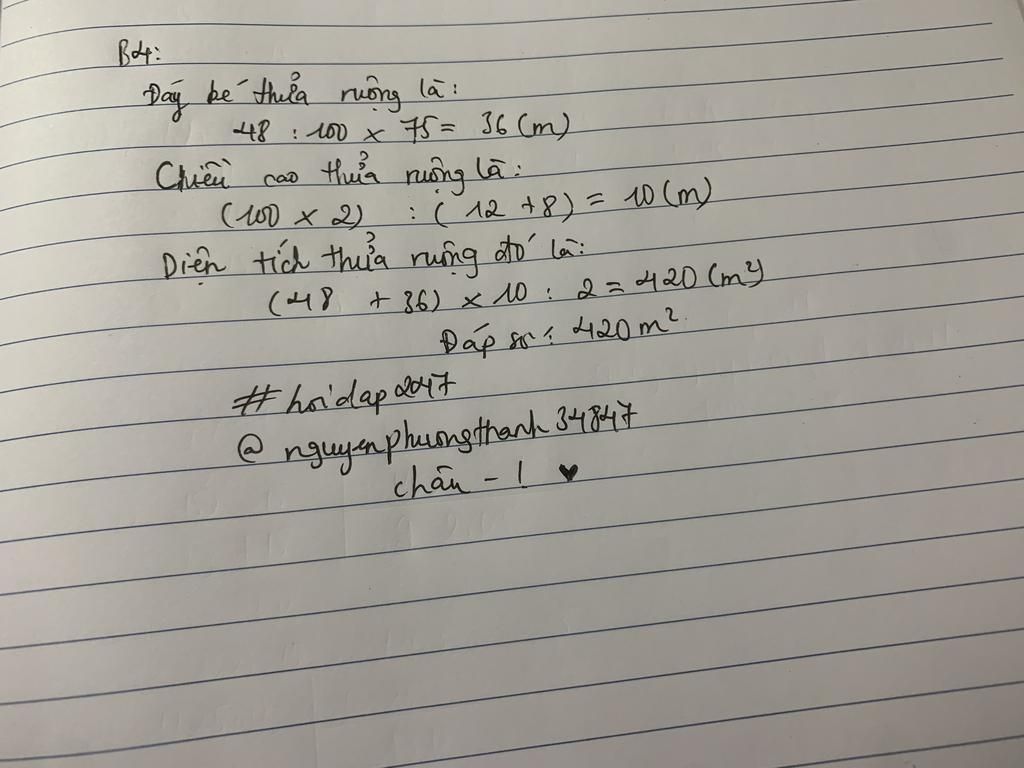 B4:
Đáy bé thửa ruộng là:
48 : 100 x 75 = 36 (m)
Chiều cao thửa ruộng là:
(100 x 2) : (12 + 8) = 10 (m)
Diện tích thửa ruộng đó là:
(48 + 36) x 10 : 2 = 420 (m²)
Đáp số: 420 m²
# hoidap247
@ nguyenphuongthanh34847
chân - ! ♥